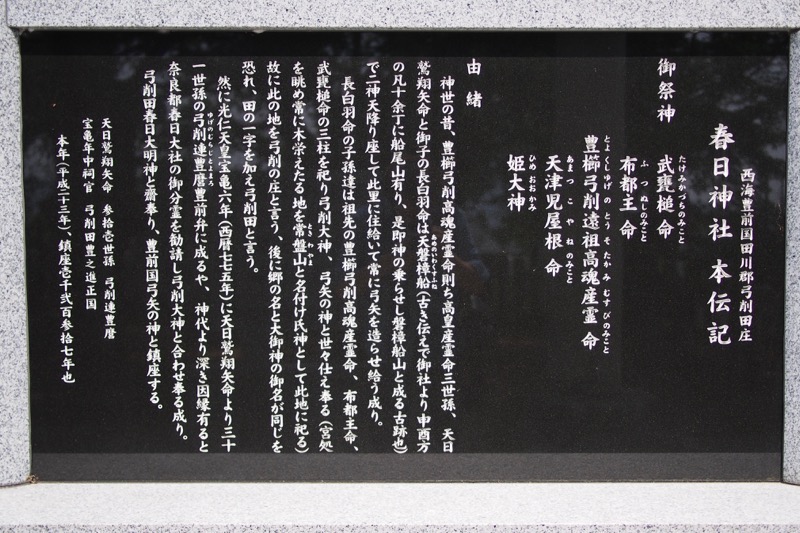 西海豊前国田川郡弓削田庄
春日神社 本伝記
御祭神
武甕槌命
たけみかづちのみこと
布都主命
ふつぬしのみこと
豊櫛弓削遠祖高魂産霊命
とよくしゆげのとうそたかみむすびのみこと
天津児屋根命
あまつこやねのみこと
姫大神
ひめおおかみ
由緒
神世の昔、豊櫛弓削高魂産霊命則ち高皇産霊命三世孫、天日
鷲翔矢命と御子の長白羽命は天磐樟船(古き伝えで御社より申酉方
あめのいわくすふね
の凡十余丁に船尾山有り、是即神の乗らせし磐樟船山と成る古跡也)
で二神天降り座して此里に住給いて常に弓矢を造らせ給う成り。
長白羽命の子孫達は祖先の豊櫛弓削高魂産霊命、布都主命、
武甕槌命の三柱を祀り弓削大神、弓矢の神と世々仕え奉る(宮処
を眺め常に木栄えたる地を常盤山と名付け氏神として此地に祀る)
ときわやま
故に此の地を弓削の庄と言う、後に郷の名と大御神の御名が同じを
恐れ、田の一字を加え弓削田と言う。
然に光仁天皇宝亀六年(西暦七七五年)に天日鷲翔矢命より三十
一世孫の弓削連豊麿豊前弁に成るや、神代より深き因縁有ると
ゆげのむらじとよまろ
奈良都春日大社の御分霊を勧請し弓削大神と合わせ奉る成り。
弓削田春日大明神と齋奉り、豊前国弓矢の神と鎮座する。
天日鷲翔矢命 参拾壱世孫 弓削連豊麿
宝亀年中祠官 弓削田豊之進正国
本年(平成二十三年)、鎮座壱千弐百参拾七年也